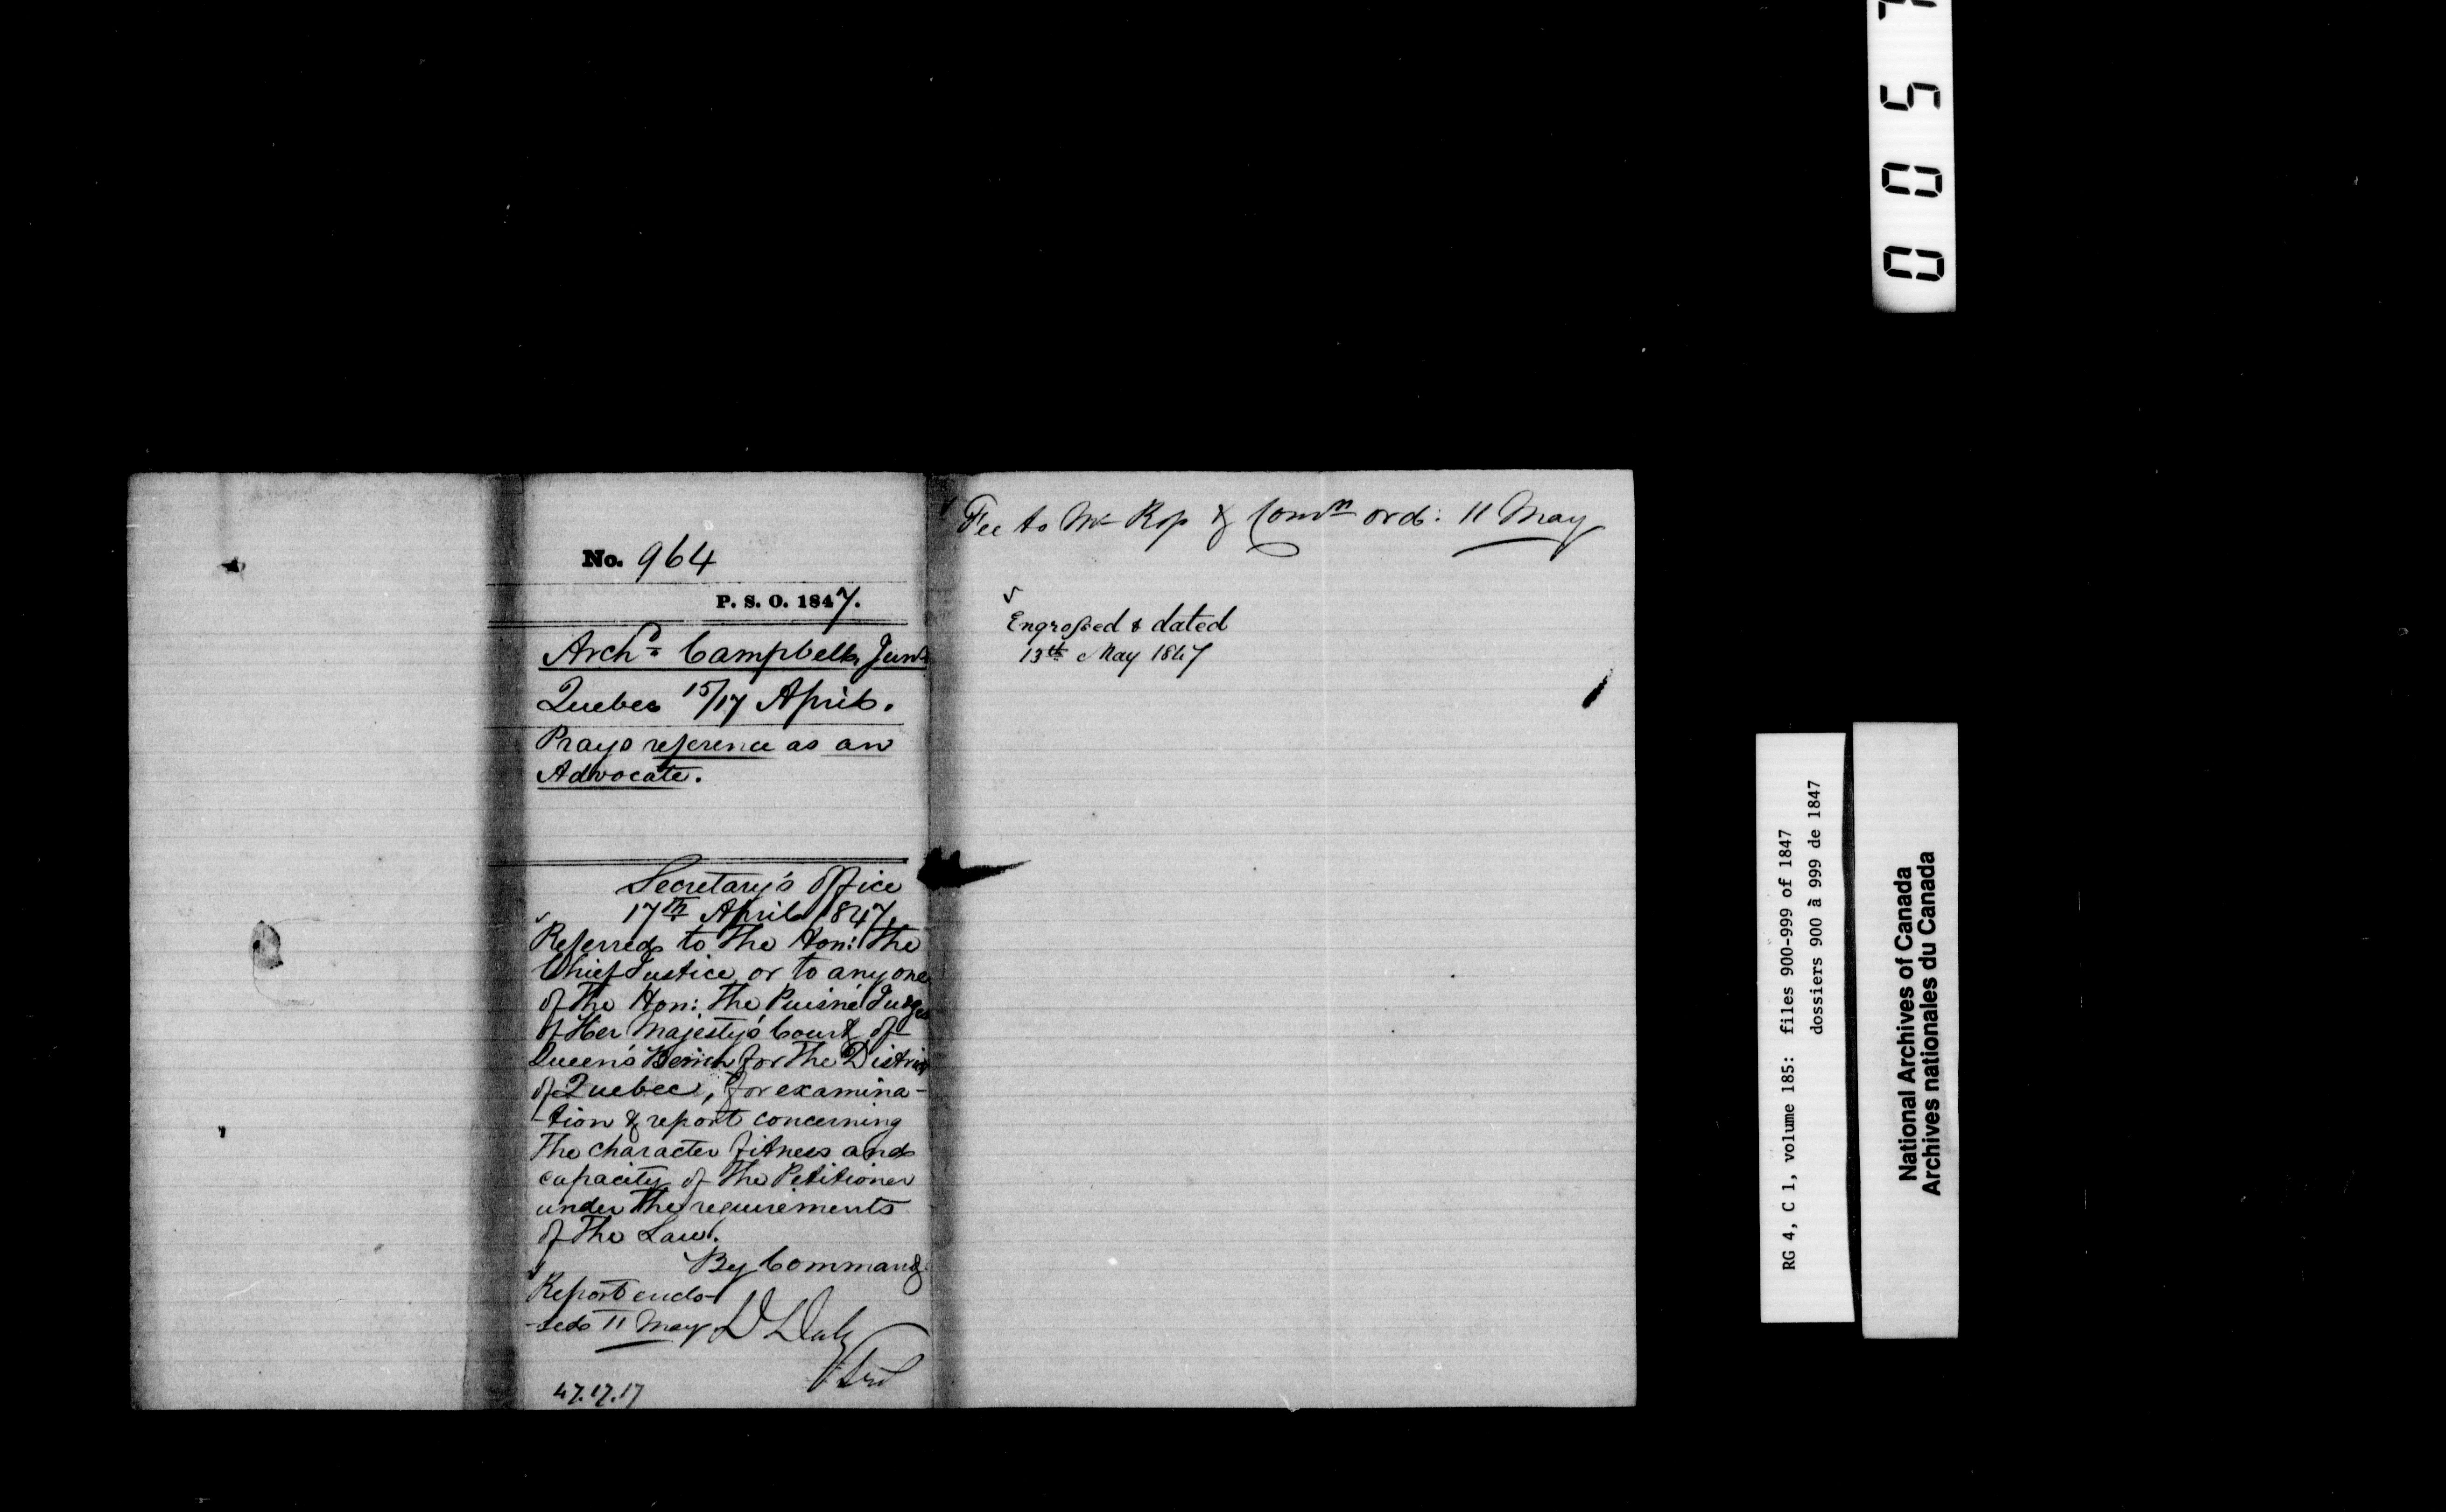 No. 964
P. S. O. 1847.
Archd Campbell, Junr
Quebec 15/17 April.
Prays reference as an
Advocate.
Secretary's Office
17th April 1847.
Referred to the Hon: the
Chief Justice or to any one
of the Hon: the Puisné Judges
of Her Majesty's Court of
Queen's Bench for the District
of Quebec, for examina-
-tion & report concerning
the character fitness and
capacity of the Petitioner
under the requirements
of the Law.
By Command
Report endo-
-sed 11 May D Daly
47.17.17
Fee to Mr & Comn ord: 11 May
Engrossed & dated
13th May 1847
0 0 5
RG 4, C 1, volume 185: files 900-999 of 1847
dossiers 900 à 999 de 1847
National Archives of Canada
Archives nationales du Canada